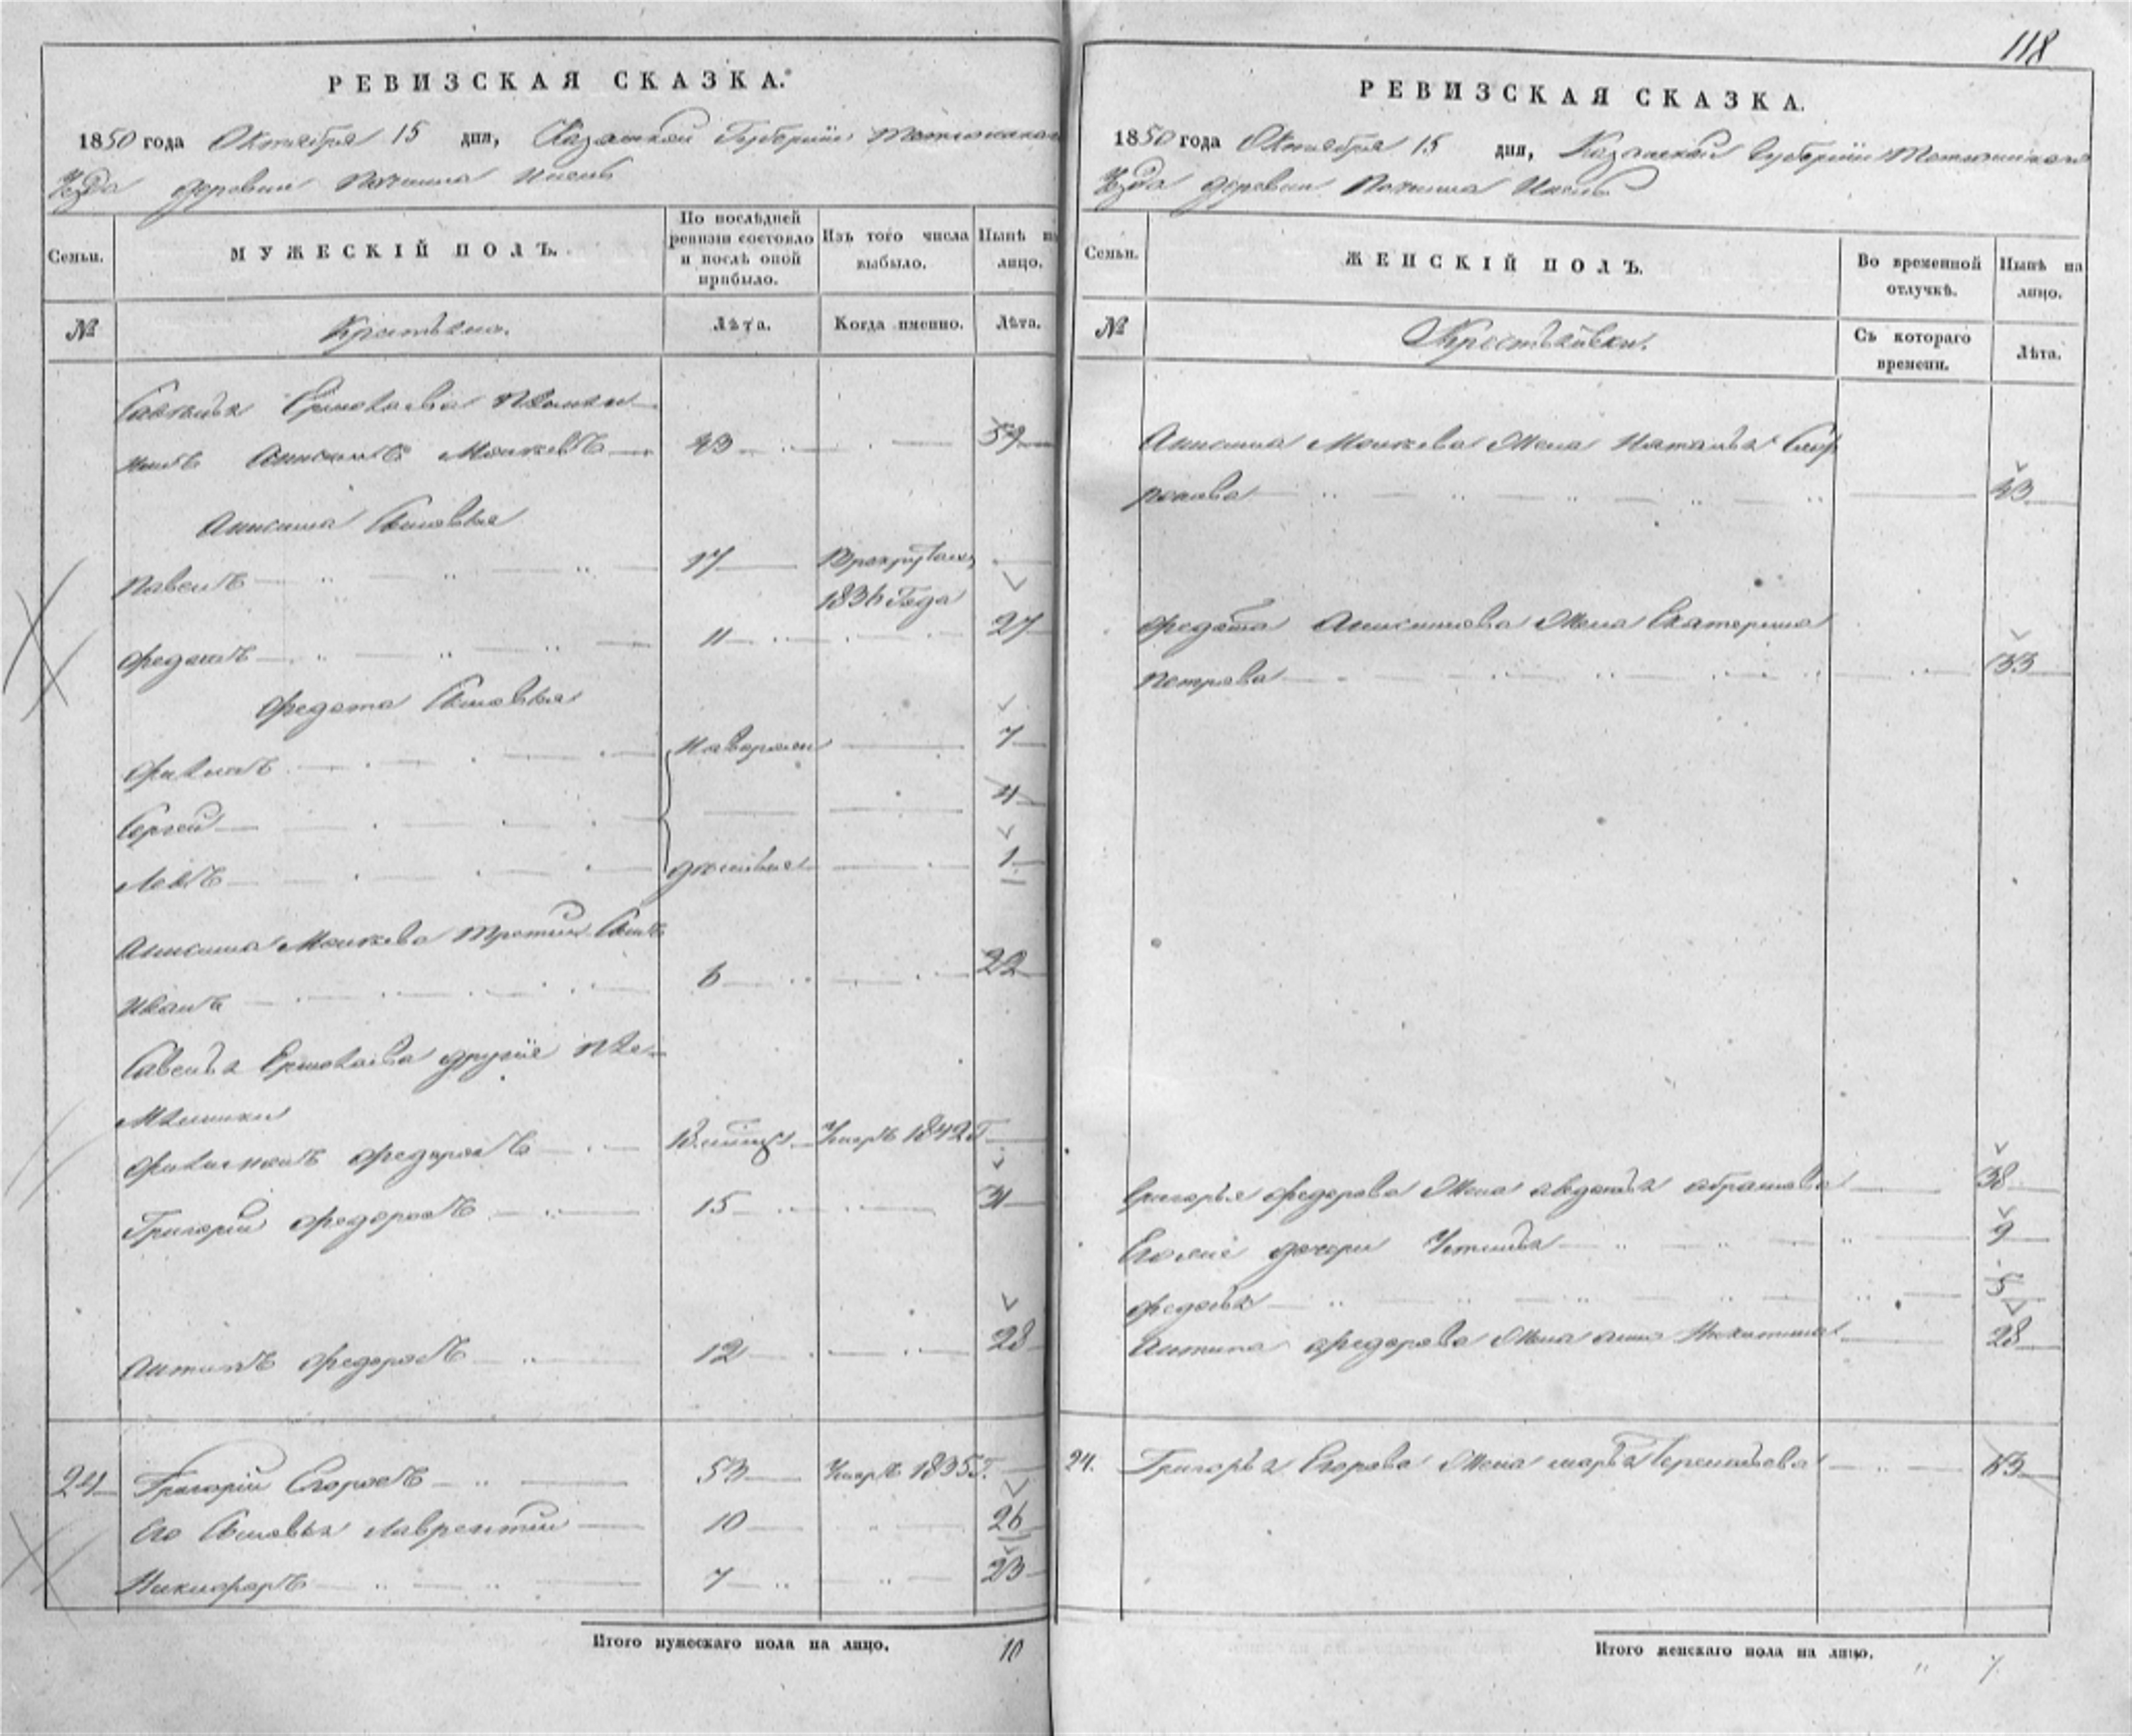 118
РЕВИЗСКАЯ СКАЗКА.
1850 года Октября 15 дня, Казанской Губернии Тетюшскаго
Уезда деревни Починка
Семьи.
МУЖЕСКІЙ ПОЛЪ.
По послѣдней ревизіи состояло и послѣ оной прибыло.
Изъ того числа выбыло.
Нынѣ на лицо.
№
Крестьяне.
Лѣта.
Когда именно.
Лѣта.
Савелья Ермолаева племян
никъ Анисимъ 43 59
Анисима Сыновья
Павелъ 17 В рекруты
1836 Года
Федотъ 11 27
Федота Сыновья
Филипъ Новорож 7
Сергей 4
Левъ денныя 1
Анисима третий Сынъ
Иванъ 6 22
Савелья Ермолаева другие пле
мянники
Филимонъ Федоровъ Умеръ 1842 Г
Григорий Федоровъ 15 31
Антипъ Федоровъ 12 28
24 Григорий Егоровъ 53 Умеръ 1835 Г.
Его Сыновья Лаврентий 10 26
Никифоръ 7 23
Итого мужескаго пола на лицо. 10
РЕВИЗСКАЯ СКАЗКА.
1850 года Октября 15 дня, Казанской Губернии Тетюшскаго
Уезда деревни Починка
Семьи.
ЖЕНСКІЙ ПОЛЪ.
Во временной отлучкѣ.
Нынѣ на лицо.
№
Крестьянки.
Съ котораго времени.
Лѣта.
Анисима Жена Наталья
43
Федота Анисимова Жена Екатерина
Петрова 33
Григорья Федорова Жена Авдотья Абрамова 38
Его же дочери Устинья 9
Федосья 5
Антипа Федорова Жена Анна Никитина 28
24. Григорья Егорова Жена Марья Терентьева
Итого женскаго пола на лицо. 7